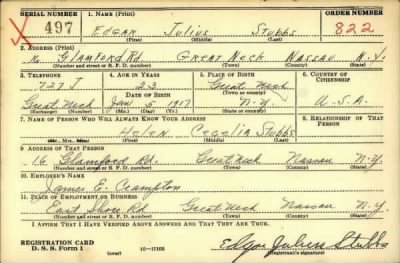 SERIAL NUMBER 1. NAME (Print) ORDER NUMBER
497 EDGAR Julius Stubbs 822
(First) (Middle) (Last)
2. ADDRESS (Print)
16 Glamford Rd Great Neck Nassau N.Y.
(Number and street or R. F. D. number) (Town) (County) (State)
3. TELEPHONE 4. AGE IN YEARS 5. PLACE OF BIRTH 6. COUNTRY OF CITIZENSHIP
727 J 23 Great Neck
DATE OF BIRTH (Town or county)
Great Neck Jan 5 1917 N.Y. U.S.A.
(Exchange) (Number) (Mo.) (Day) (Yr.) (State or country)
7. NAME OF PERSON WHO WILL ALWAYS KNOW YOUR ADDRESS 8. RELATIONSHIP OF THAT PERSON
Helen Cecelia Stubbs
(Mr., Mrs., Miss) (First) (Middle) (Last)
9. ADDRESS OF THAT PERSON
16 Glamford Rd. Great Neck Nassau N.Y.
(Number and street or R. F. D. number) (Town) (County) (State)
10. EMPLOYER'S NAME
James E. Crampton
11. PLACE OF EMPLOYMENT OR BUSINESS
East Shore Rd Great Neck Nassau N.Y.
(Number and street or R. F. D. number) (Town) (County) (State)
I AFFIRM THAT I HAVE VERIFIED ABOVE ANSWERS AND THAT THEY ARE TRUE.
REGISTRATION CARD
D. S. S. Form 1 (over) 16—17105 Edgar Julius Stubbs
(Registrant's signature)